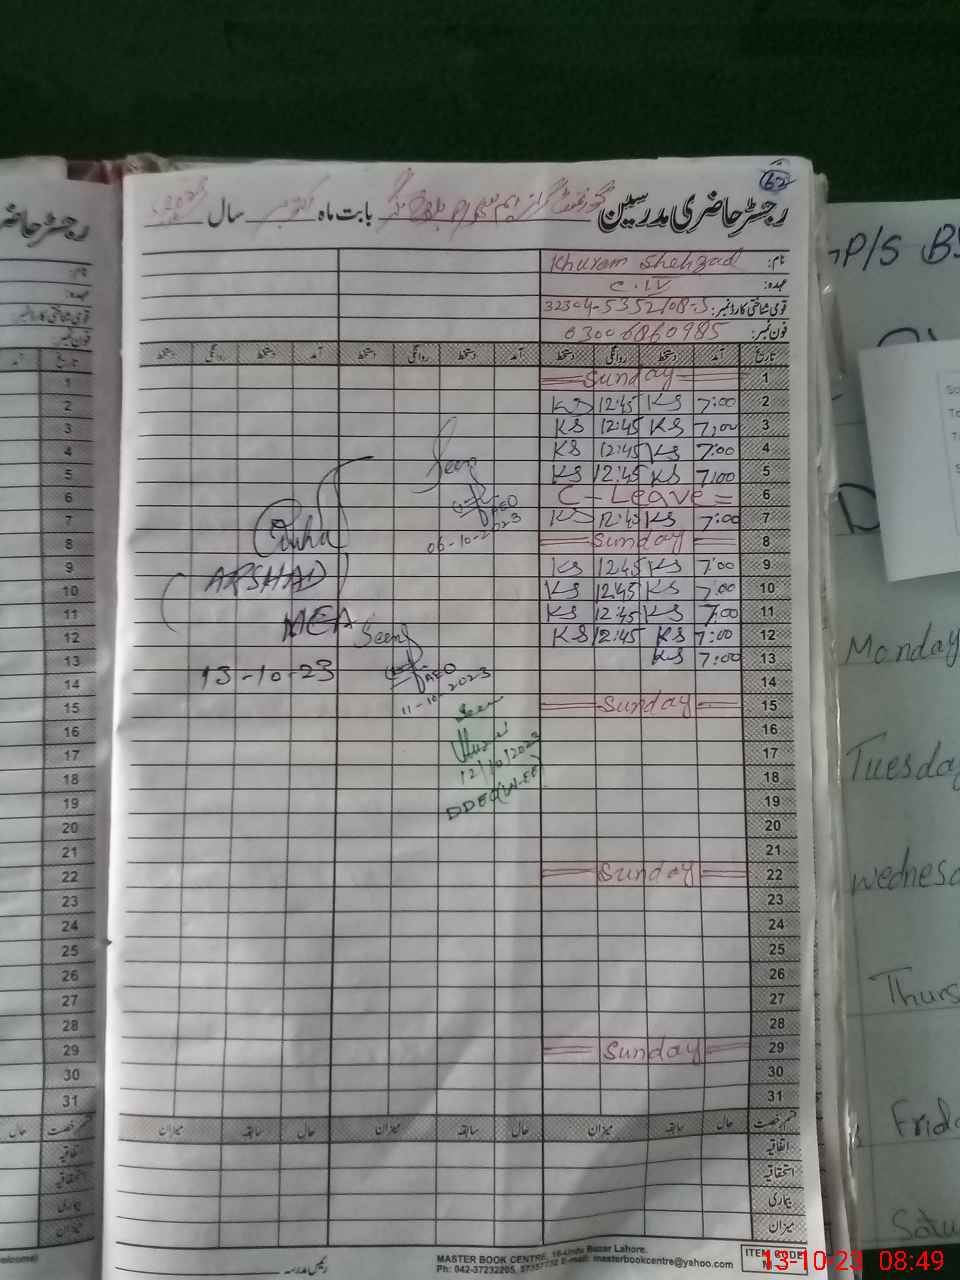 62
رجسٹر حاضری مدرسین گورنمنٹ گرلز ایم سی بابت ماہ اکتوبر سال 2023
نام: Khuram Shehzad
عہدہ: C.IV
قومی شناختی کارڈ نمبر: 32304-5352108-5
فون نمبر: 03006860985
تاریخ آمد دستخط روانگی دستخط آمد دستخط روانگی دستخط
1 Sunday
2 7:00 KS 12:45 KS
3 7:00 KS 12:45 KS
4 7:00 KS 12:45 KS
5 7:00 KS 12:45 KS
6 C-Leave
7 7:00 KS 12:45 KS
8 Sunday
9 7:00 KS 12:45 KS
10 7:00 KS 12:45 KS
11 7:00 KS 12:45 KS
12 7:00 KS 12:45 KS
13 7:00 KS
14
15 Sunday
16
17
18
19
20
21
22 Sunday
23
24
25
26
27
28
29 Sunday
30
31
Seen
AEO
06-10-2023
ARSHAD
MEA
13-10-23
Seen
AEO
11-10-2023
Seen
12/10/2023
DDEO(W-EE)
قسم رخصت حال سابقہ میزان حال سابقہ میزان
اتفاقیہ
استحقاقیہ
بیماری
میزان
رئیس مدرسہ
MASTER BOOK CENTRE, 16-Urdu Bazar Lahore.
Ph: 042-37232205, 37357732 E-mail: masterbookcentre@yahoo.com
ITEM CODE
رجسٹر حاضری
نام:
عہدہ:
قومی شناختی کارڈ نمبر:
فون نمبر:
تاریخ آمد
1
2
3
4
5
6
7
8
9
10
11
12
13
14
15
16
17
18
19
20
21
22
23
24
25
26
27
28
29
30
31
قسم رخصت حال
اتفاقیہ
استحقاقیہ
بیماری
میزان
P/S
Monday
Tuesday
Wednesd
Thurs
Frid
Satu
13-10-23 08:49